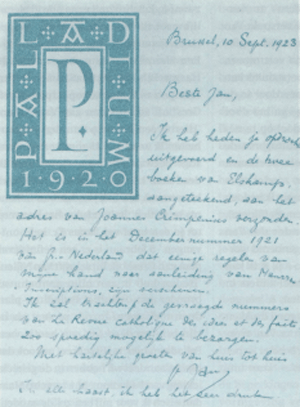 PALLADIUM
P.
1920
Brussel, 10 Sept. 1923
Beste Jan,
Ik heb heden je
uitgevoerd en de twee
boeken van Elskamp,
aangeteekend, aan het
adres van Joannes Crimpenius verzonden
Het is in het Decembernummer 1921
van Gr. Nederland dat eenige regelen van
mijne hand naar aanleiding van
Inscriptions, zijn verschenen.
Ik zal trachten de gevraagde nummers
van La Revue Catholique des idées et des faits
zoo spoedig mogelijk te bezorgen.
Met hartelijke groeten van huis tot huis
In alle haast, ik heb het zeer druk.